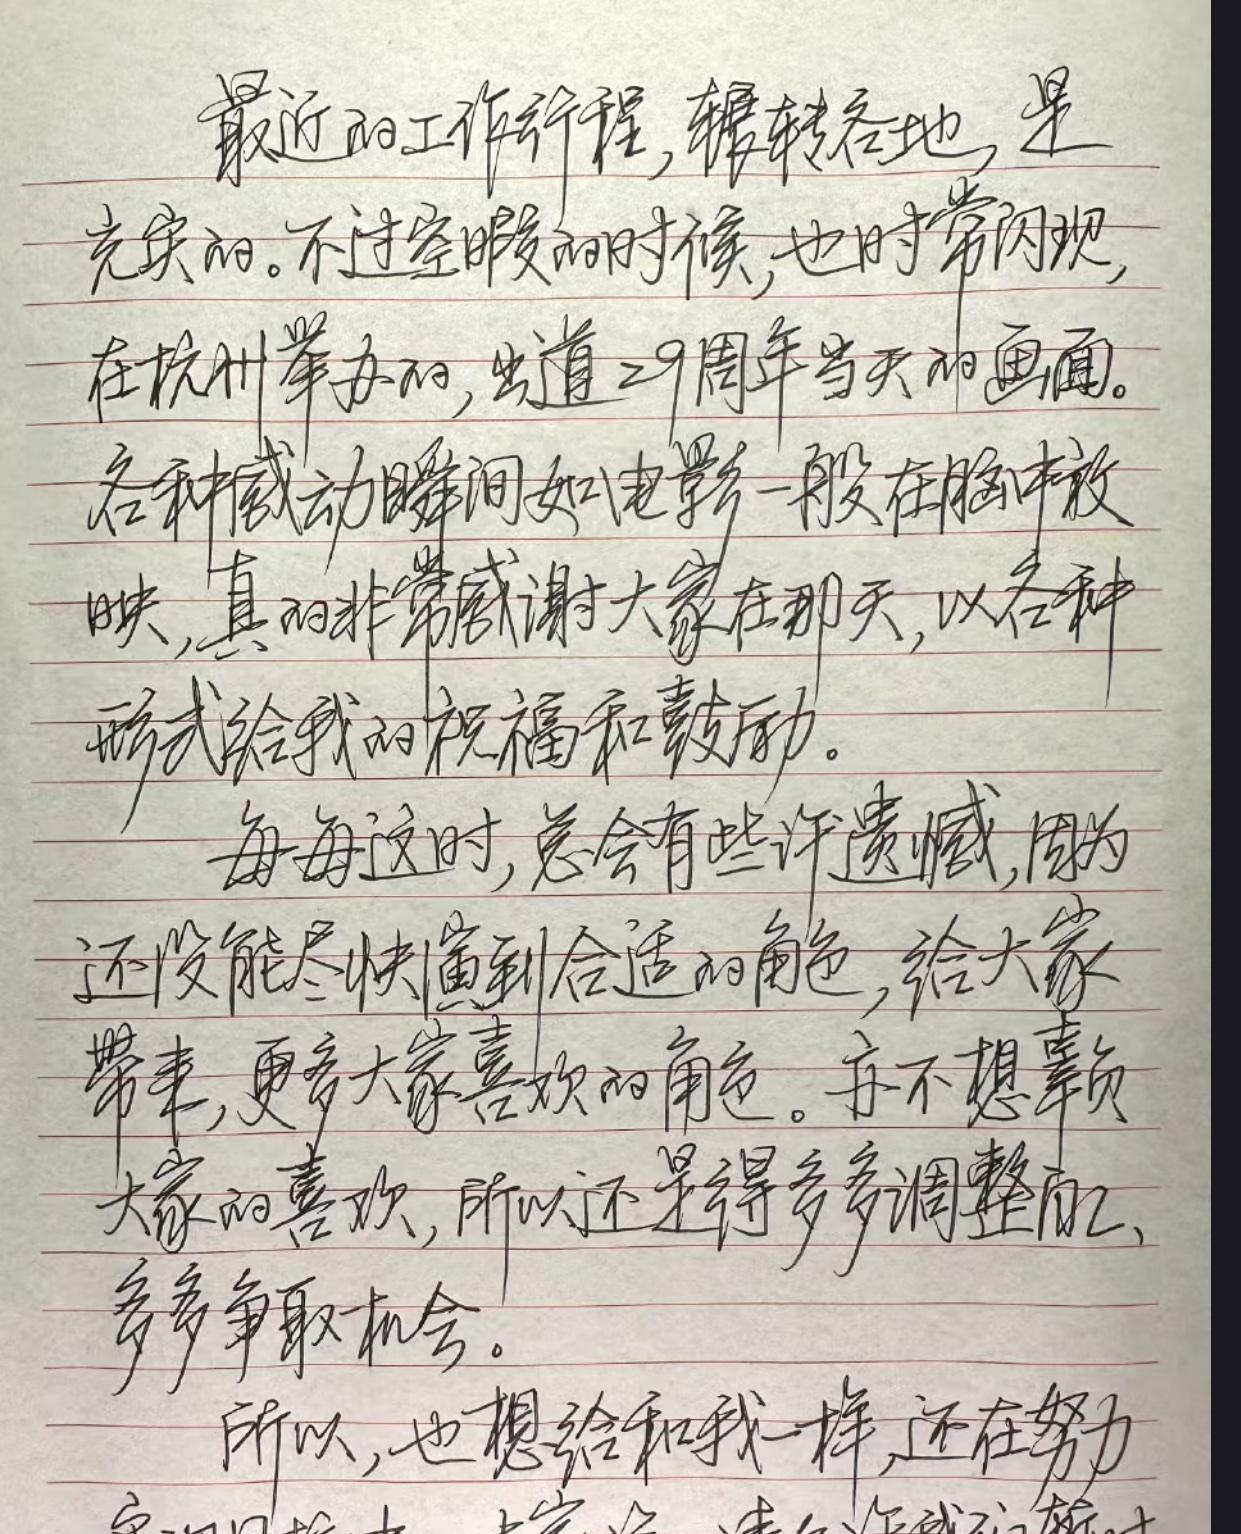 最近的工作行程,辗转各地,是
充实的。不过空暇的时候,也时常闪现,
在杭州举办的,出道29周年当天的画面。
各种感动瞬间如电影一般在脑中放
映,真的非常感谢大家在那天,以各种
形式给我的祝福和鼓励。
每每这时,总会有些许遗憾,因为
还没能尽快演到合适的角色,给大家
带来,更多大家喜欢的角色。亦不想辜负
大家的喜欢,所以还是得多多调整自己、
多多争取机会。
所以,也想给和我一样,还在努力